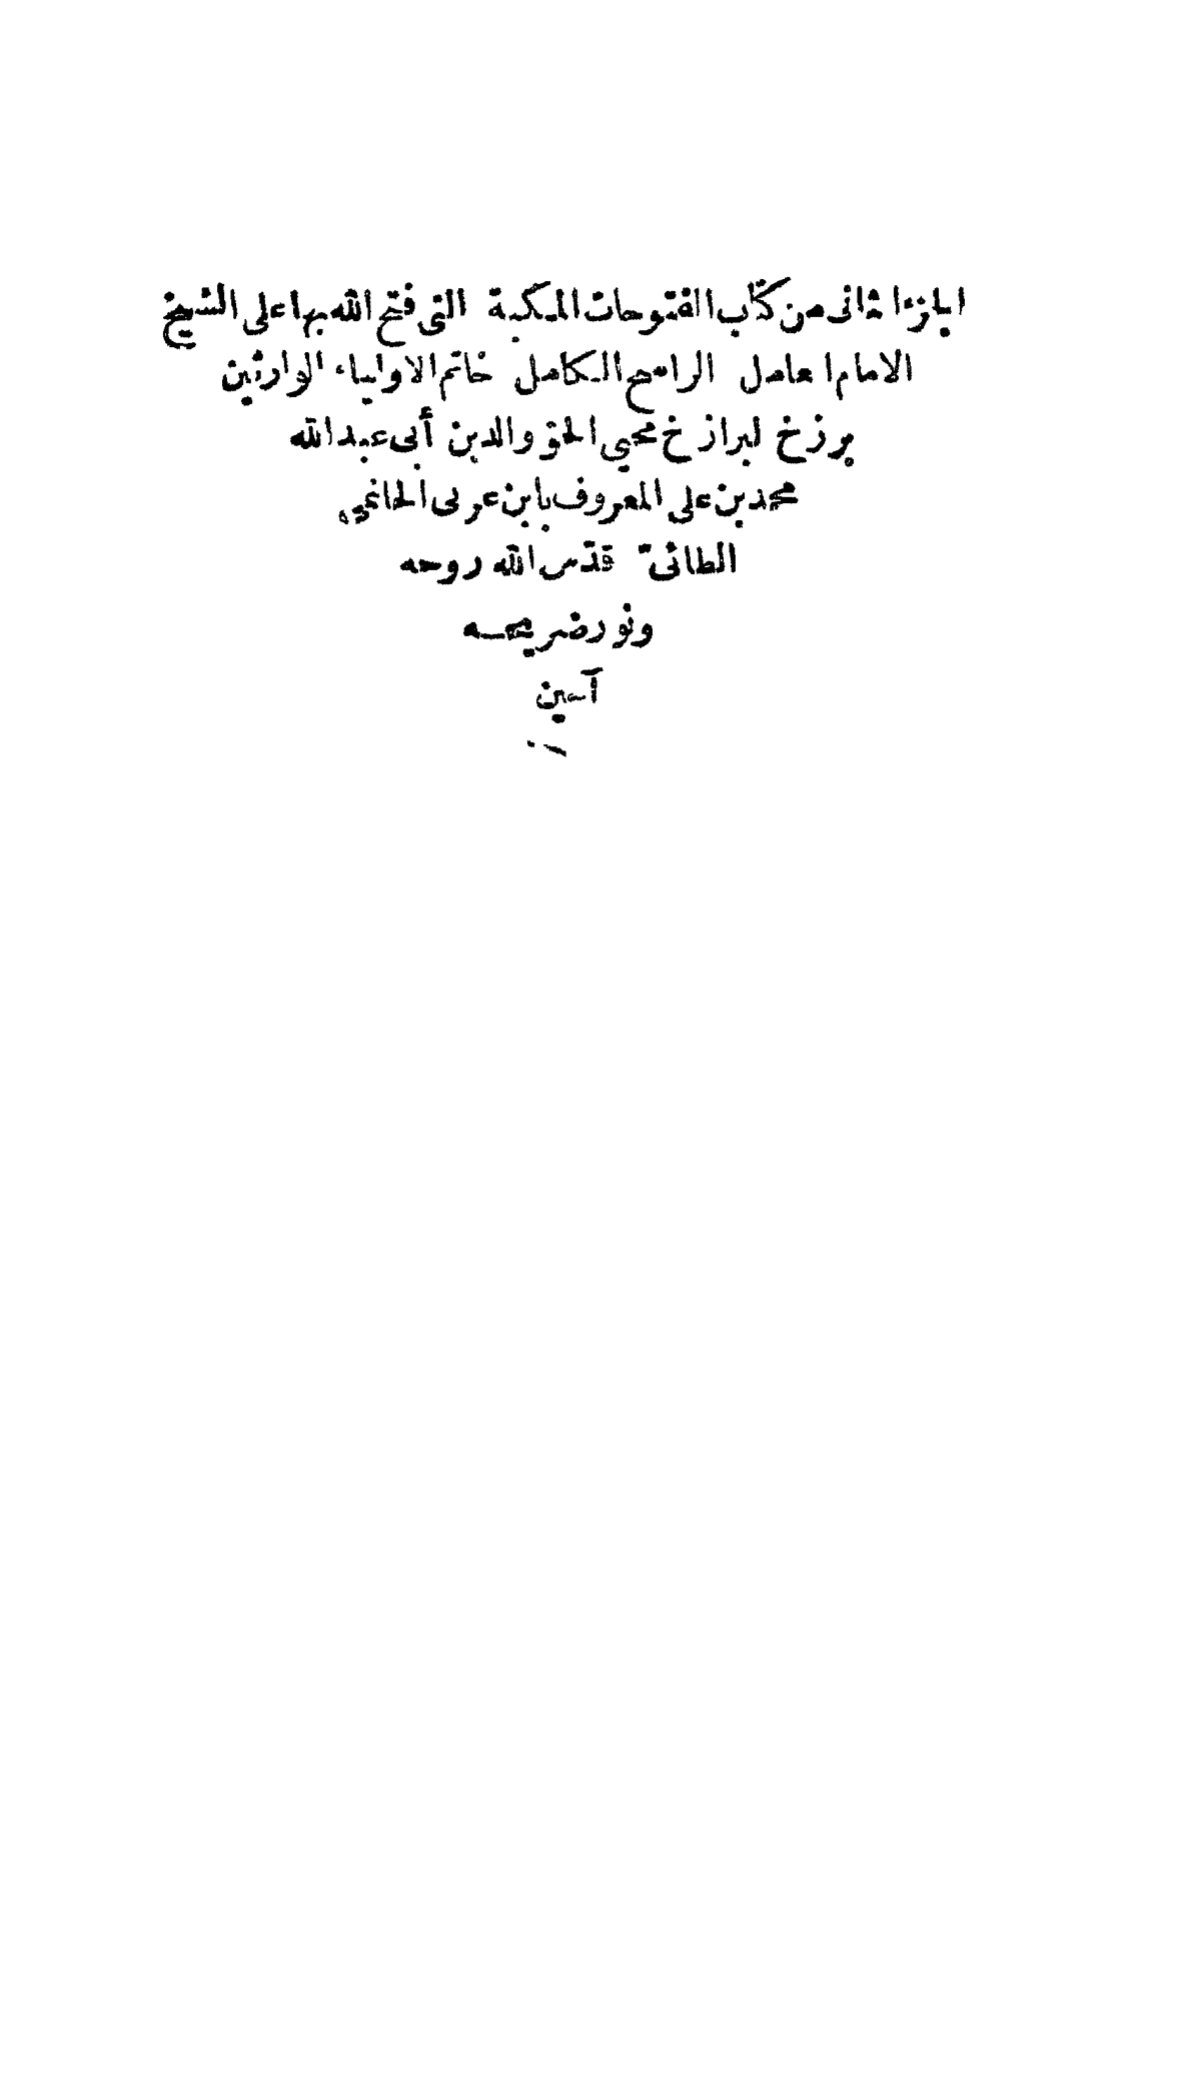 الجزء الثانى من كتاب الفتوحات المكية التى فتح الله بها على الشيخ
الامام العامل الراسخ الكامل خاتم الاولياء الوارثين
برزخ البرازخ محيي الحق والدين أبى عبد الله
محمد بن على المعروف بابن عربى الحاتمي
الطائىّ قدّس الله روحه
ونور ضريحه
آمين